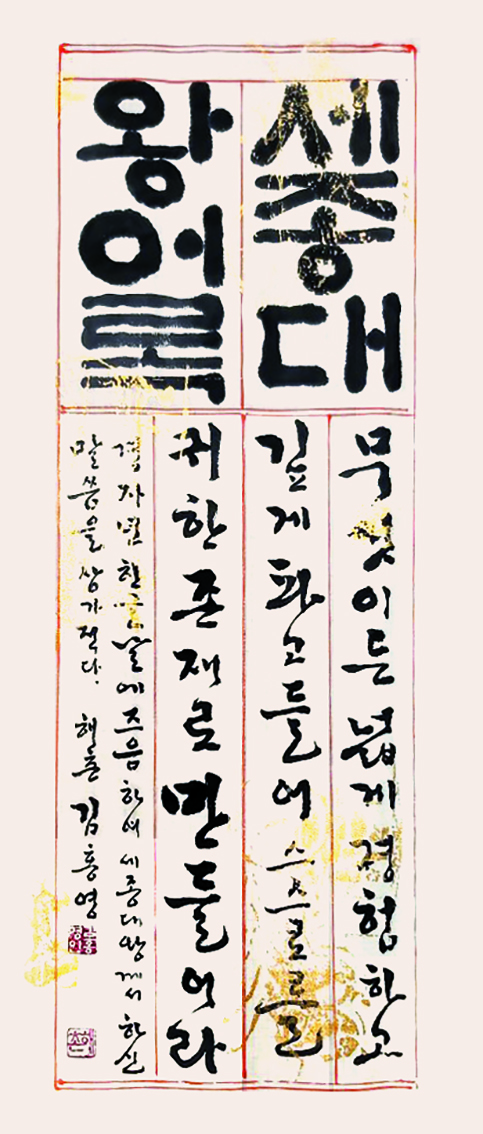 세종대
왕어록
무엇이든 넓게 경험하고
깊게 파고들어 스스로를
귀한 존재로 만들어라
경자년 한글날에 즈음하여 세종대왕께서 하신
말씀을 상기적다. 해춘 김홍영